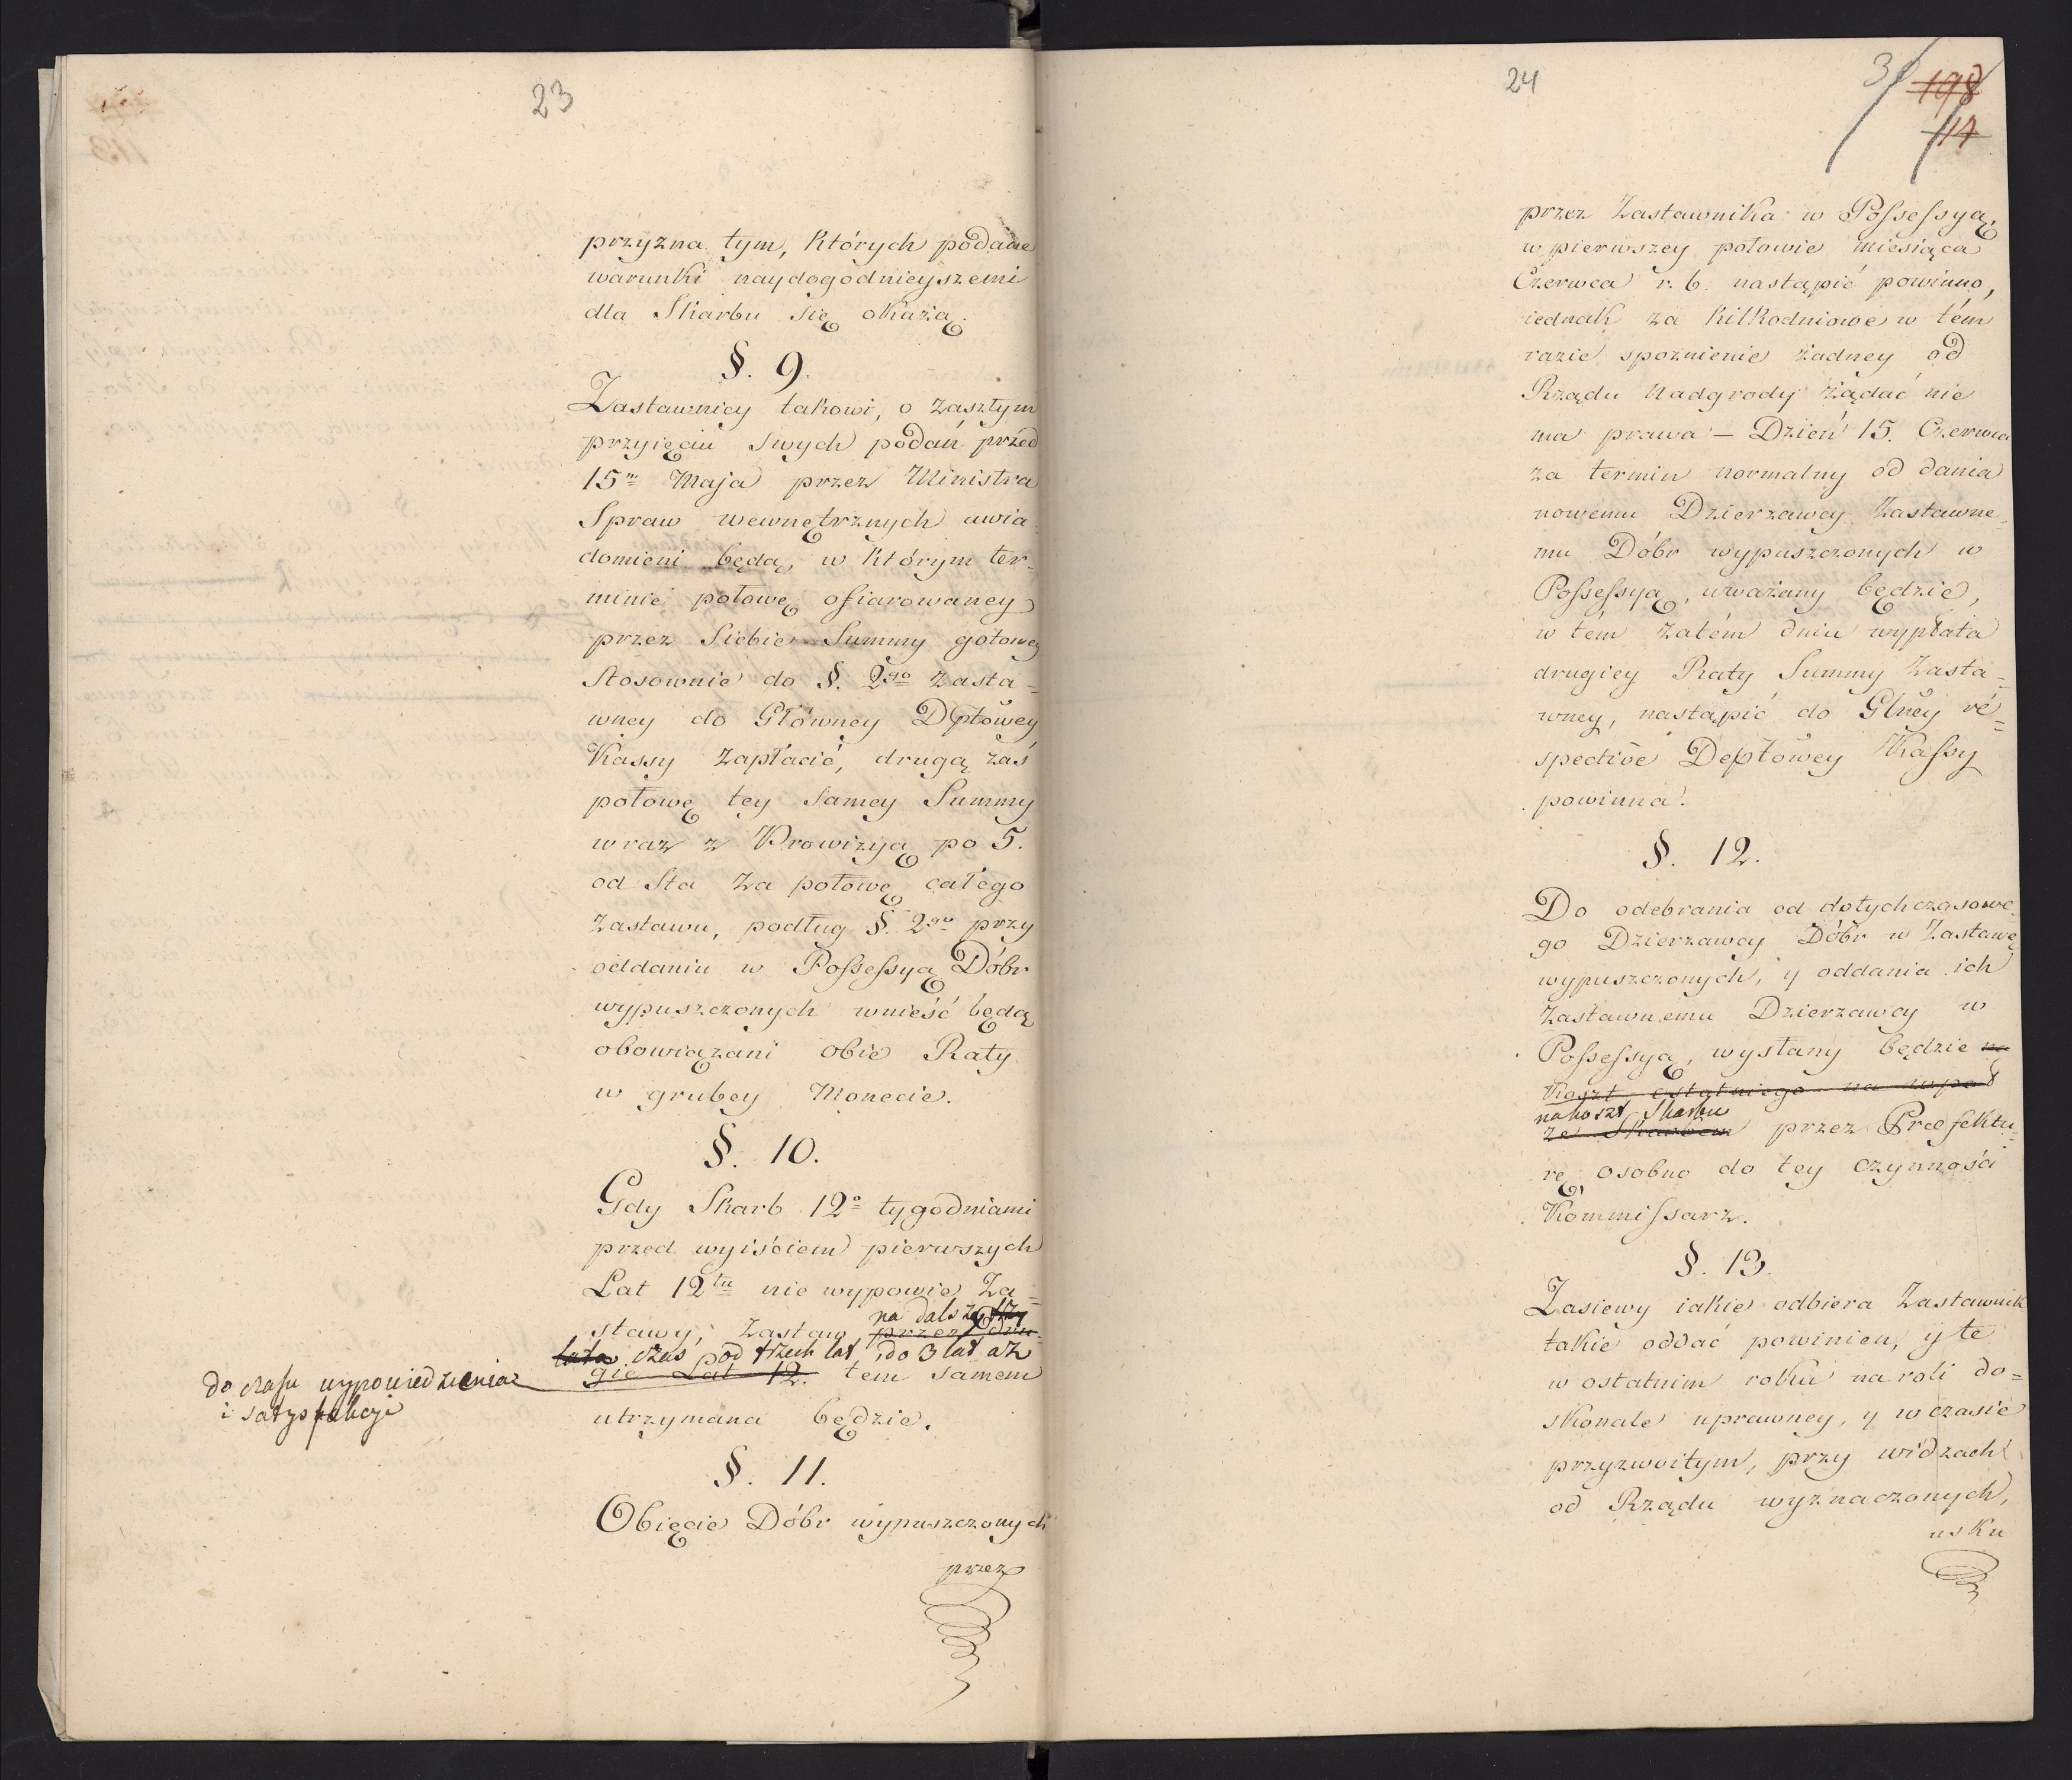 23
przyzna tym, których podane
warunki naydogodnieyszemi
dla Skarbu się okażą.
§. 9.
Zastawnicy takowi, o zaszłym
przyięciu swych podań przed
15ᵐ Maja przez Ministra
Spraw wewnętrznych uwia-
domieni będą, w którym ter-
minie połowę ofiarowaney
przez siebie Summy gotowey
Stosownie do §. 2go Zasta-
wney do Główney Dptowey
Kassy zapłacić, drugą zaś
połowę tey samey Summy
wraz z Prowizyą po 5.
od Sta za połowę całego
Zastawu, podług §. 2go przy
oddaniu w Possessyą Dóbr
wypuszczonych wnieść będą
obowiązani obie Raty
w grubey Monecie.
§. 10.
Gdy Skarb 12o tygodniami
przed wyiściem pierwszych
Lat 12tu nie wypowie Za-
na dalszy trzy
stawy, Zastaw przez dru-
lata czas od trzech lat do 3 lat aż
gie Lat 12. tem samem
do czasu wypowiedzenia
i satysfakcyi
utrzymana będzie.
§. 11.
Obięcie Dóbr wypuszczonych
przez
24
198
117
przez Zastawnika w Possessyą,
w pierwszey połowie miesiąca
Czerwca r. b. nastąpić powinno,
iednak za kilkodniowe w tém
razie spoznienie żadney od
Rządu Nadgrody żądać nie
ma prawa – Dzień 15. Czerwca
za termin normalny oddania
nowemu Dzierzawcy Zastawne-
mu Dóbr wypuszczonych w
Possessyą, uważany będzie,
w tém zatém dniu wypłata
drugiey Raty Summy Zasta-
wney, nastąpić do Głney re-
spective Deptowey Kassy
powinna.
§. 12.
Do odebrania od dotychczasowe-
go Dzierzawcy Dóbr w Zastawę
wypuszczonych, y oddania ich
Zastawnemu Dzierzawcy w
Possessyą, wysłany będzie na
Koszt ostatniego na wpół
na koszt Skarbu
ze Skarbem przez Prefektu-
rę osobno do tey czynności
Kommissarz.
§. 13.
Zasiewy iakie odbiera Zastawnik
takie oddać powinien, y te
w ostatnim roku na roli do-
skonale uprawney, y w czasie
przyzwoitym, przy widzach
od Rządu wyznaczonych,
usku